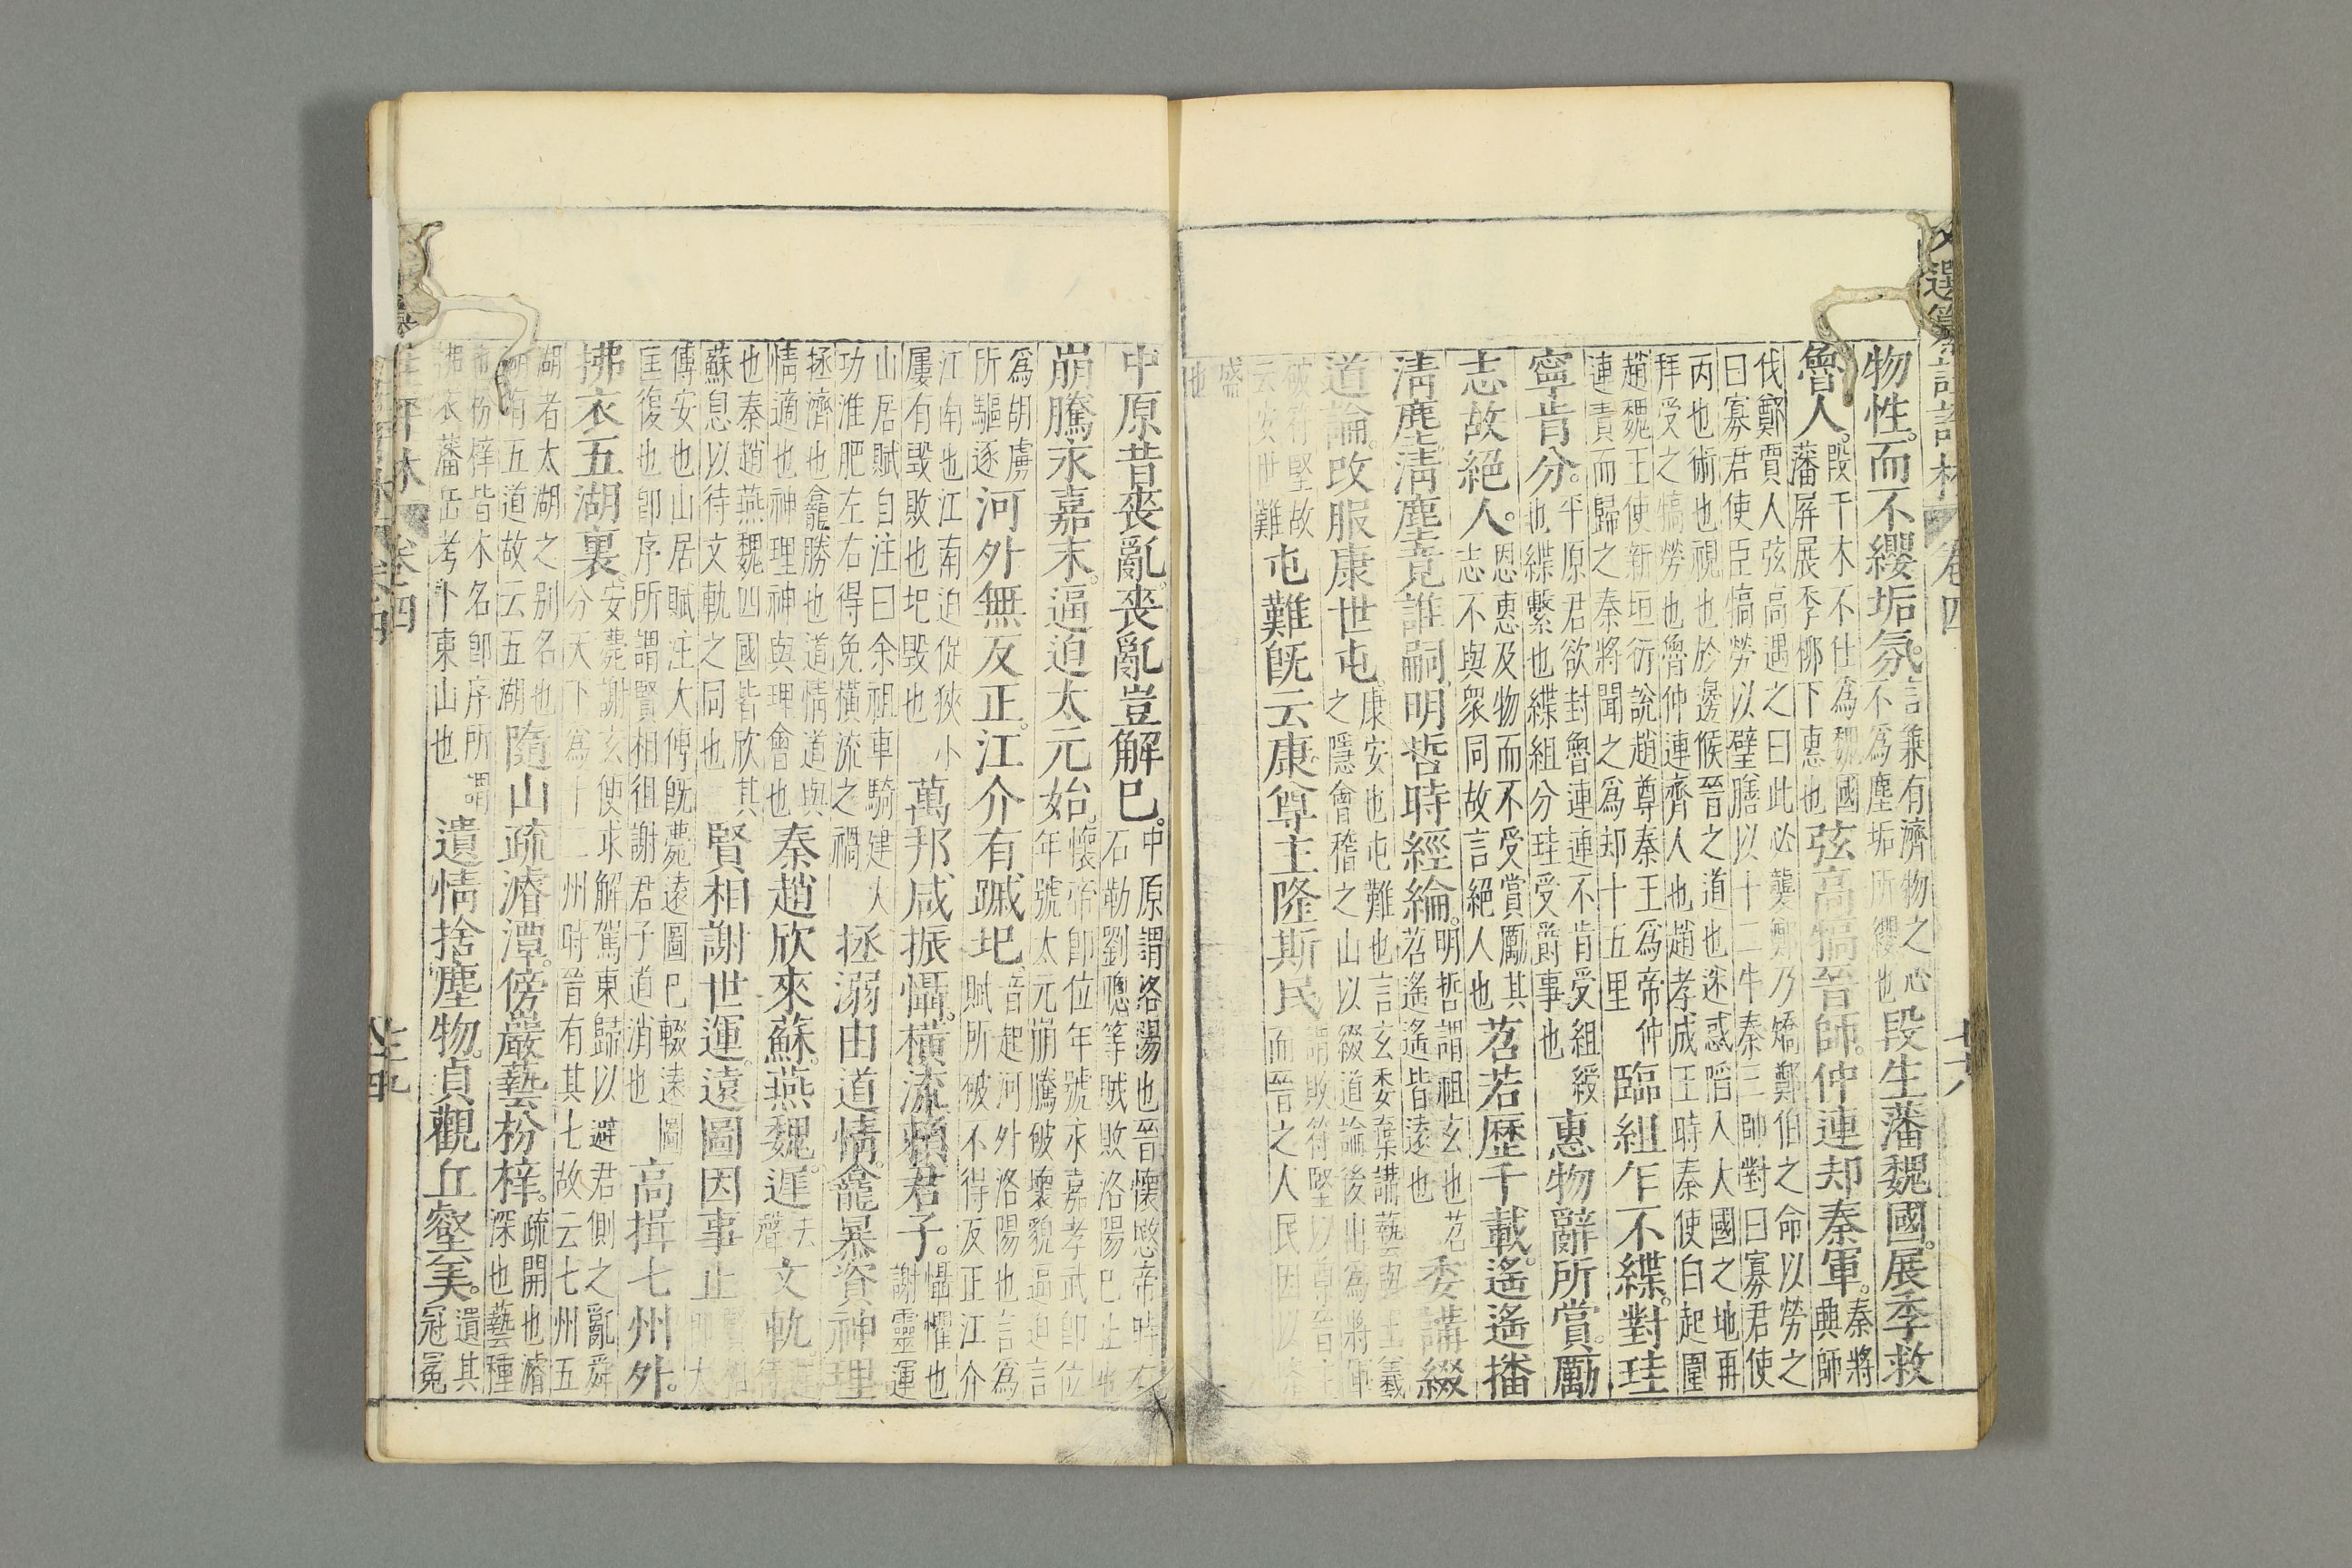 物性。而不纓垢氛。言兼有濟物之心不爲塵垢所纓也段生藩魏國。展季救
魯人。段干木不仕爲魏國藩屏展季柳下惠也弦高犒晉師。仲連却秦軍。秦將興師
伐鄭賈人弦高遇之曰此必襲鄭乃矯鄭伯之命以勞之曰寡君使臣犒勞以璧膳以十二牛秦三帥對曰寡君使
丙也術也視也於邊候晉之道也迷惑陷入大國之地再拜受之犒勞也魯仲連齊人也趙孝成王時秦使白起圍
趙魏王使新垣衍說趙尊秦王爲帝仲連責而歸之秦將聞之爲却十五里臨組乍不緤。對珪
寧肯分。平原君欲封魯連連不肯受組綬也緤繫也緤組分珪受爵事也惠物辭所賞。勵
志故絕人。恩惠及物而不受賞勵其志不與衆同故言絕人也苕若歷千載。遙遙播
清塵。清塵竟誰嗣。明哲時經綸。明哲謂祖玄也苕苕遙遙皆遠也委講綴
道論。改服康世屯。康安也屯難也言玄委棄講藝與王羲之隱會稽之山以綴道論後出爲將軍
破符堅故云安世難屯難旣云康。尊主隆斯民。謂敗符堅以尊晉主而晉之人民因以
盛也
中原昔喪亂。喪亂豈解巳。中原謂洛陽也晉懷愍帝時石勒劉聰等賊敗洛陽巳止也
崩騰永嘉末。逼迫太元始。懷帝卽位年號永嘉孝武卽位年號太元崩騰破壞貌逼迫言
爲胡虜所驅逐河外無反正。江介有蹙圮。音起河外洛陽也言爲賊所破不得反正江介
江南也江南迫促狹小屢有毀敗也圮毀也萬邦咸振懾。橫流賴君子。懾懼也謝靈運
山居賦自注曰余祖車騎建大功淮肥左右得免橫流之禍拯溺由道情。龕暴資神理
拯濟也龕勝也道情道與情適也神理神與理會也秦趙欣來蘇。燕魏遲去聲文軌。
也秦趙燕魏四國皆欣其蘇息以待文軌之同也賢相謝世運。遠圖因事止
傅安也山居賦注大傅旣薨遠圖巳輟遠圖匡復也卽序所謂賢相徂謝君子道消也高揖七州外。
拂衣五湖裏。安薨謝玄便求解駕東歸以避君側之亂舜分天下爲十二州時晉有其七故云七州五
湖者太湖之別名也湖有五道故云五湖隨山疏濬潭。傍巖藝枌梓。疏開也濬深也藝種
也枌梓皆木名卽序所謂拂衣蕃岳考卜東山也遺情捨塵物。貞觀丘壑美。遺其冠冕
卷四
七十八